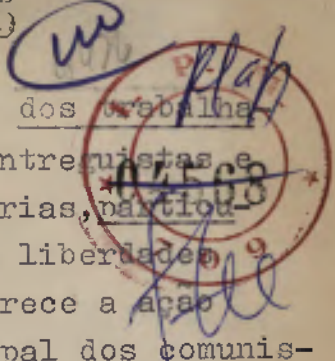 dos trabalha
entreguistas e
04568
rias, partiu
liberdades
rece a ação
pal dos comunis-